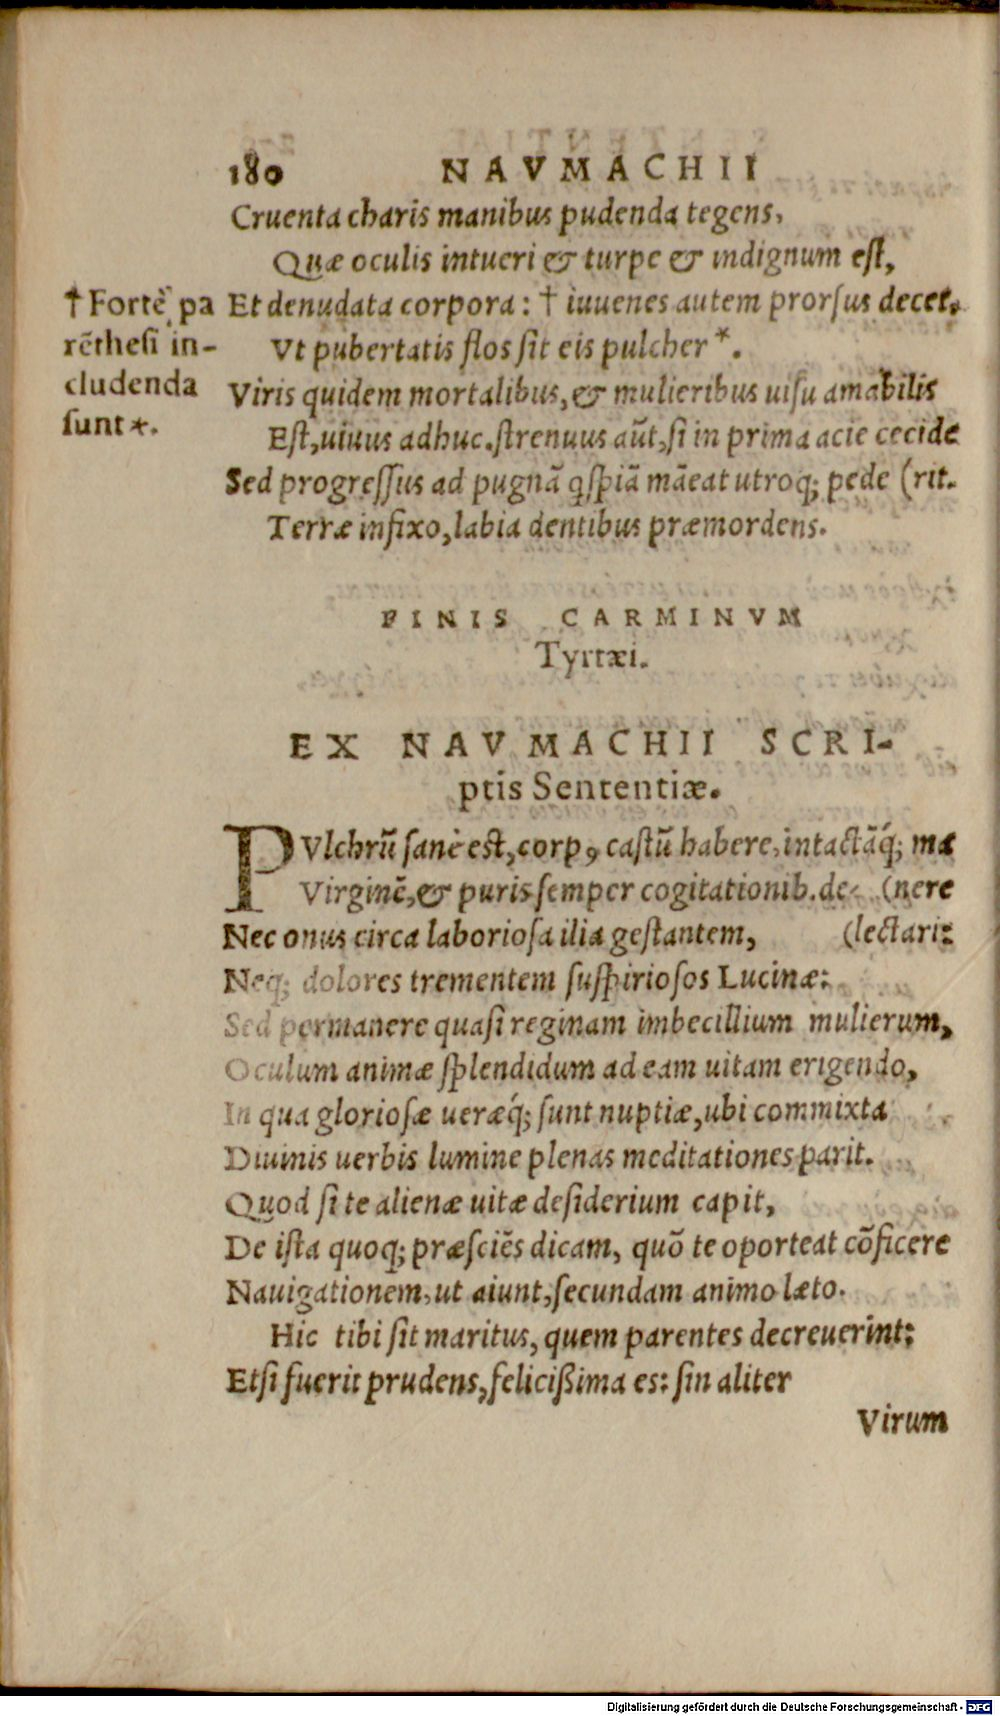 180 NAVMACHII
Cruenta charis manibus pudenda tegens,
Quæ oculis intueri & turpe & indignum est,
Et denudata corpora: † iuuenes autem prorsus decet,
Vt pubertatis flos sit eis pulcher *.
Viris quidem mortalibus, & mulieribus uisu amabilis
Est, uiuus adhuc. strenuus aūt, si in prima acie cecide
Sed progressus ad pugnā q̃spiā māeat utroq; pede (rit.
Terræ infixo, labia dentibus præmordens.
† Fortè pa
rēthesi in-
cludenda
sunt *.
FINIS CARMINVM
Tyrtæi.
EX NAVMACHII SCRI-
ptis Sententiæ.
PVlchrū sanè est, corpꝰ castū habere, intactāq́; ma
Virginē, & puris semper cogitationib. de- (nere
Nec onus circa laboriosa ilia gestantem, (lectari:
Neq; dolores trementem suspiriosos Lucinæ:
Sed permanere quasi reginam imbecillium mulierum,
Oculum animæ splendidum ad eam uitam erigendo,
In qua gloriosæ ueræq́; sunt nuptiæ, ubi commixta
Diuinis uerbis lumine plenas meditationes parit.
Quod si te alienæ uitæ desiderium capit,
De ista quoq; præsciēs dicam, quō te oporteat cōficere
Nauigationem, ut aiunt, secundam animo læto.
Hic tibi sit maritus, quem parentes decreuerint:
Etsi fuerit prudens, felicißima es: sin aliter
Virum
Digitalisierung gefördert durch die Deutsche Forschungsgemeinschaft - DFG